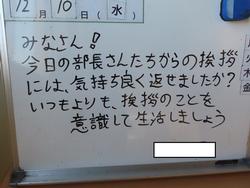 12月10日(水)
みなさん!
今日の部長さんたちからの挨拶
には、気持ち良く返せましたか?
いつもよりも、挨拶のことを
意識して生活しましょう
火
木
金